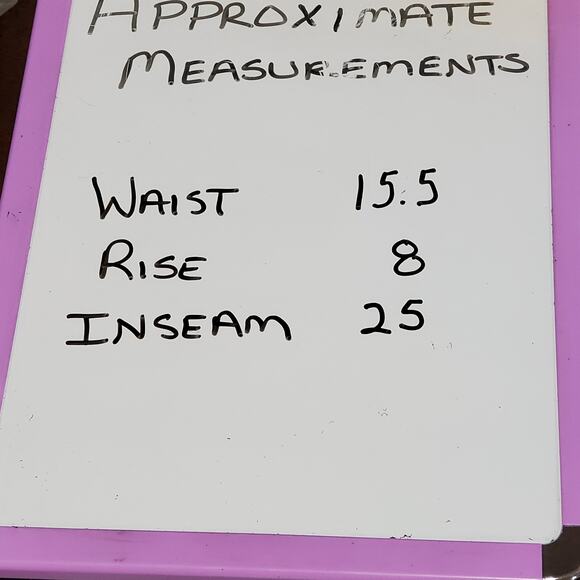 APPROXIMATE
MEASUREMENTS
WAIST 15.5
RISE 8
INSEAM 25